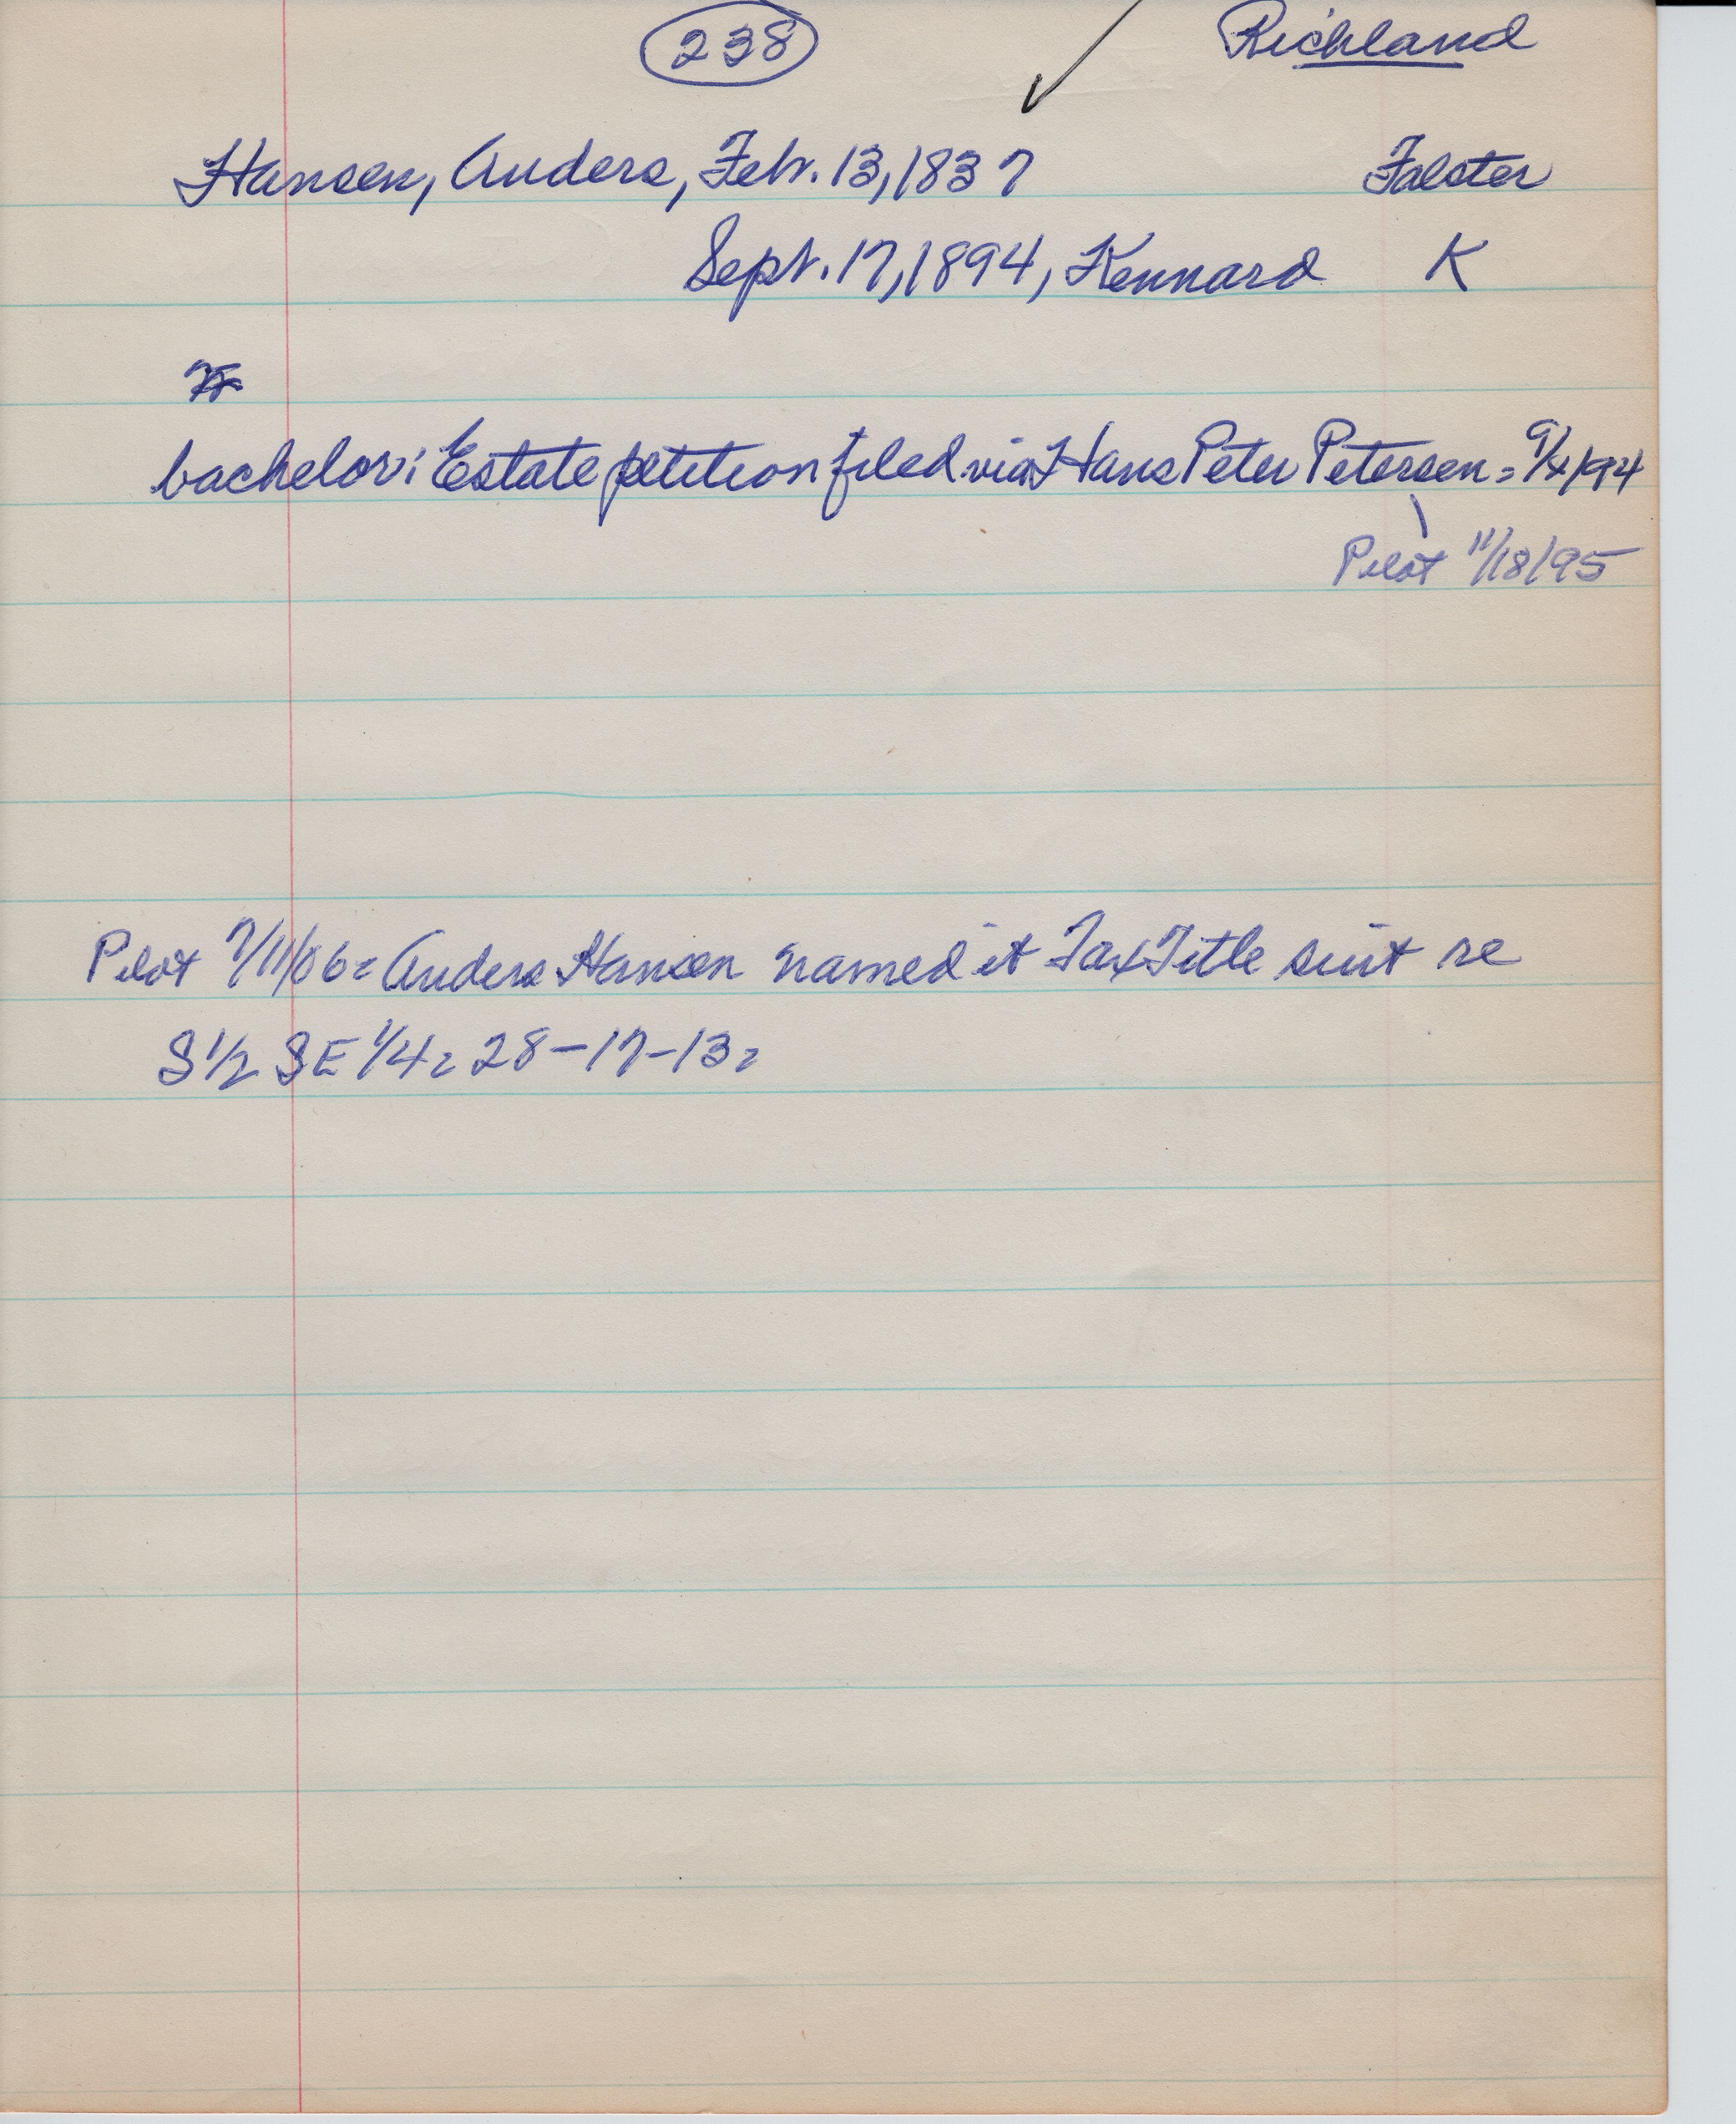 238 Richland
Hansen, Anders, Feb. 13, 1837 Falster
Sept. 17, 1894, Kennard K
bachelor; Estate petition filed via Hans Peter Petersen = 94
Pilot 11/18/95
Pilot 7/11/06 = Anders Hansen named it Tax Title suit re
S 1/2 SE 1/4 = 28-17-13 =